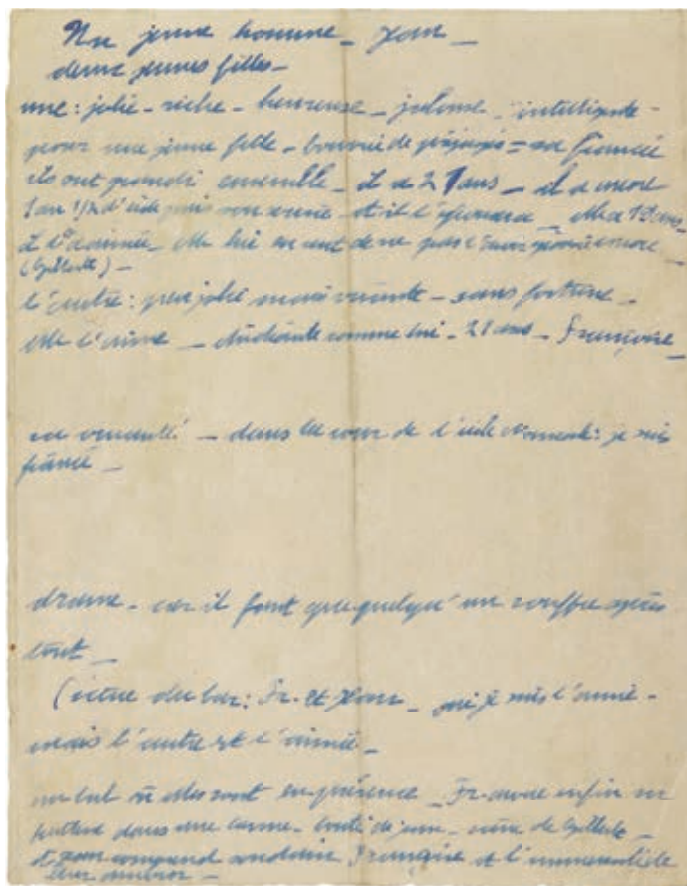 Un jeune homme _ Jean _
deux jeunes filles _
une : jolie _ riche _ heureuse _ jalouse _ intelligente _
pour une jeune fille _ bourrée de préjugés = sa fiancée
ils ont grandi ensemble _ il a 21 ans _ il a encore
1 an 1/2 d'école puis son armée _ et il l'épousera _ elle a 18 ans _
il l'a aimée _ elle lui en veut de ne pas l'avoir encore _
(Gilberte) _
l'autre : peu jolie mais vivante _ sans fortune _
elle l'aime _ étudiante comme lui _ 21 ans _ Françoise _
_ dans la cour de l'école : je suis
fiancé _
drame _ car il faut que quelqu'un souffre après
tout _
(scène du bar : Fr. et Jean _ oui je suis l'amie _
mais l'autre est l'aimée _
un bal où elles sont en présence _ Fr. avoue enfin
dans une _ bonté de Jean _ de Gilberte _
et Jean comprend soudain Françoise et l'